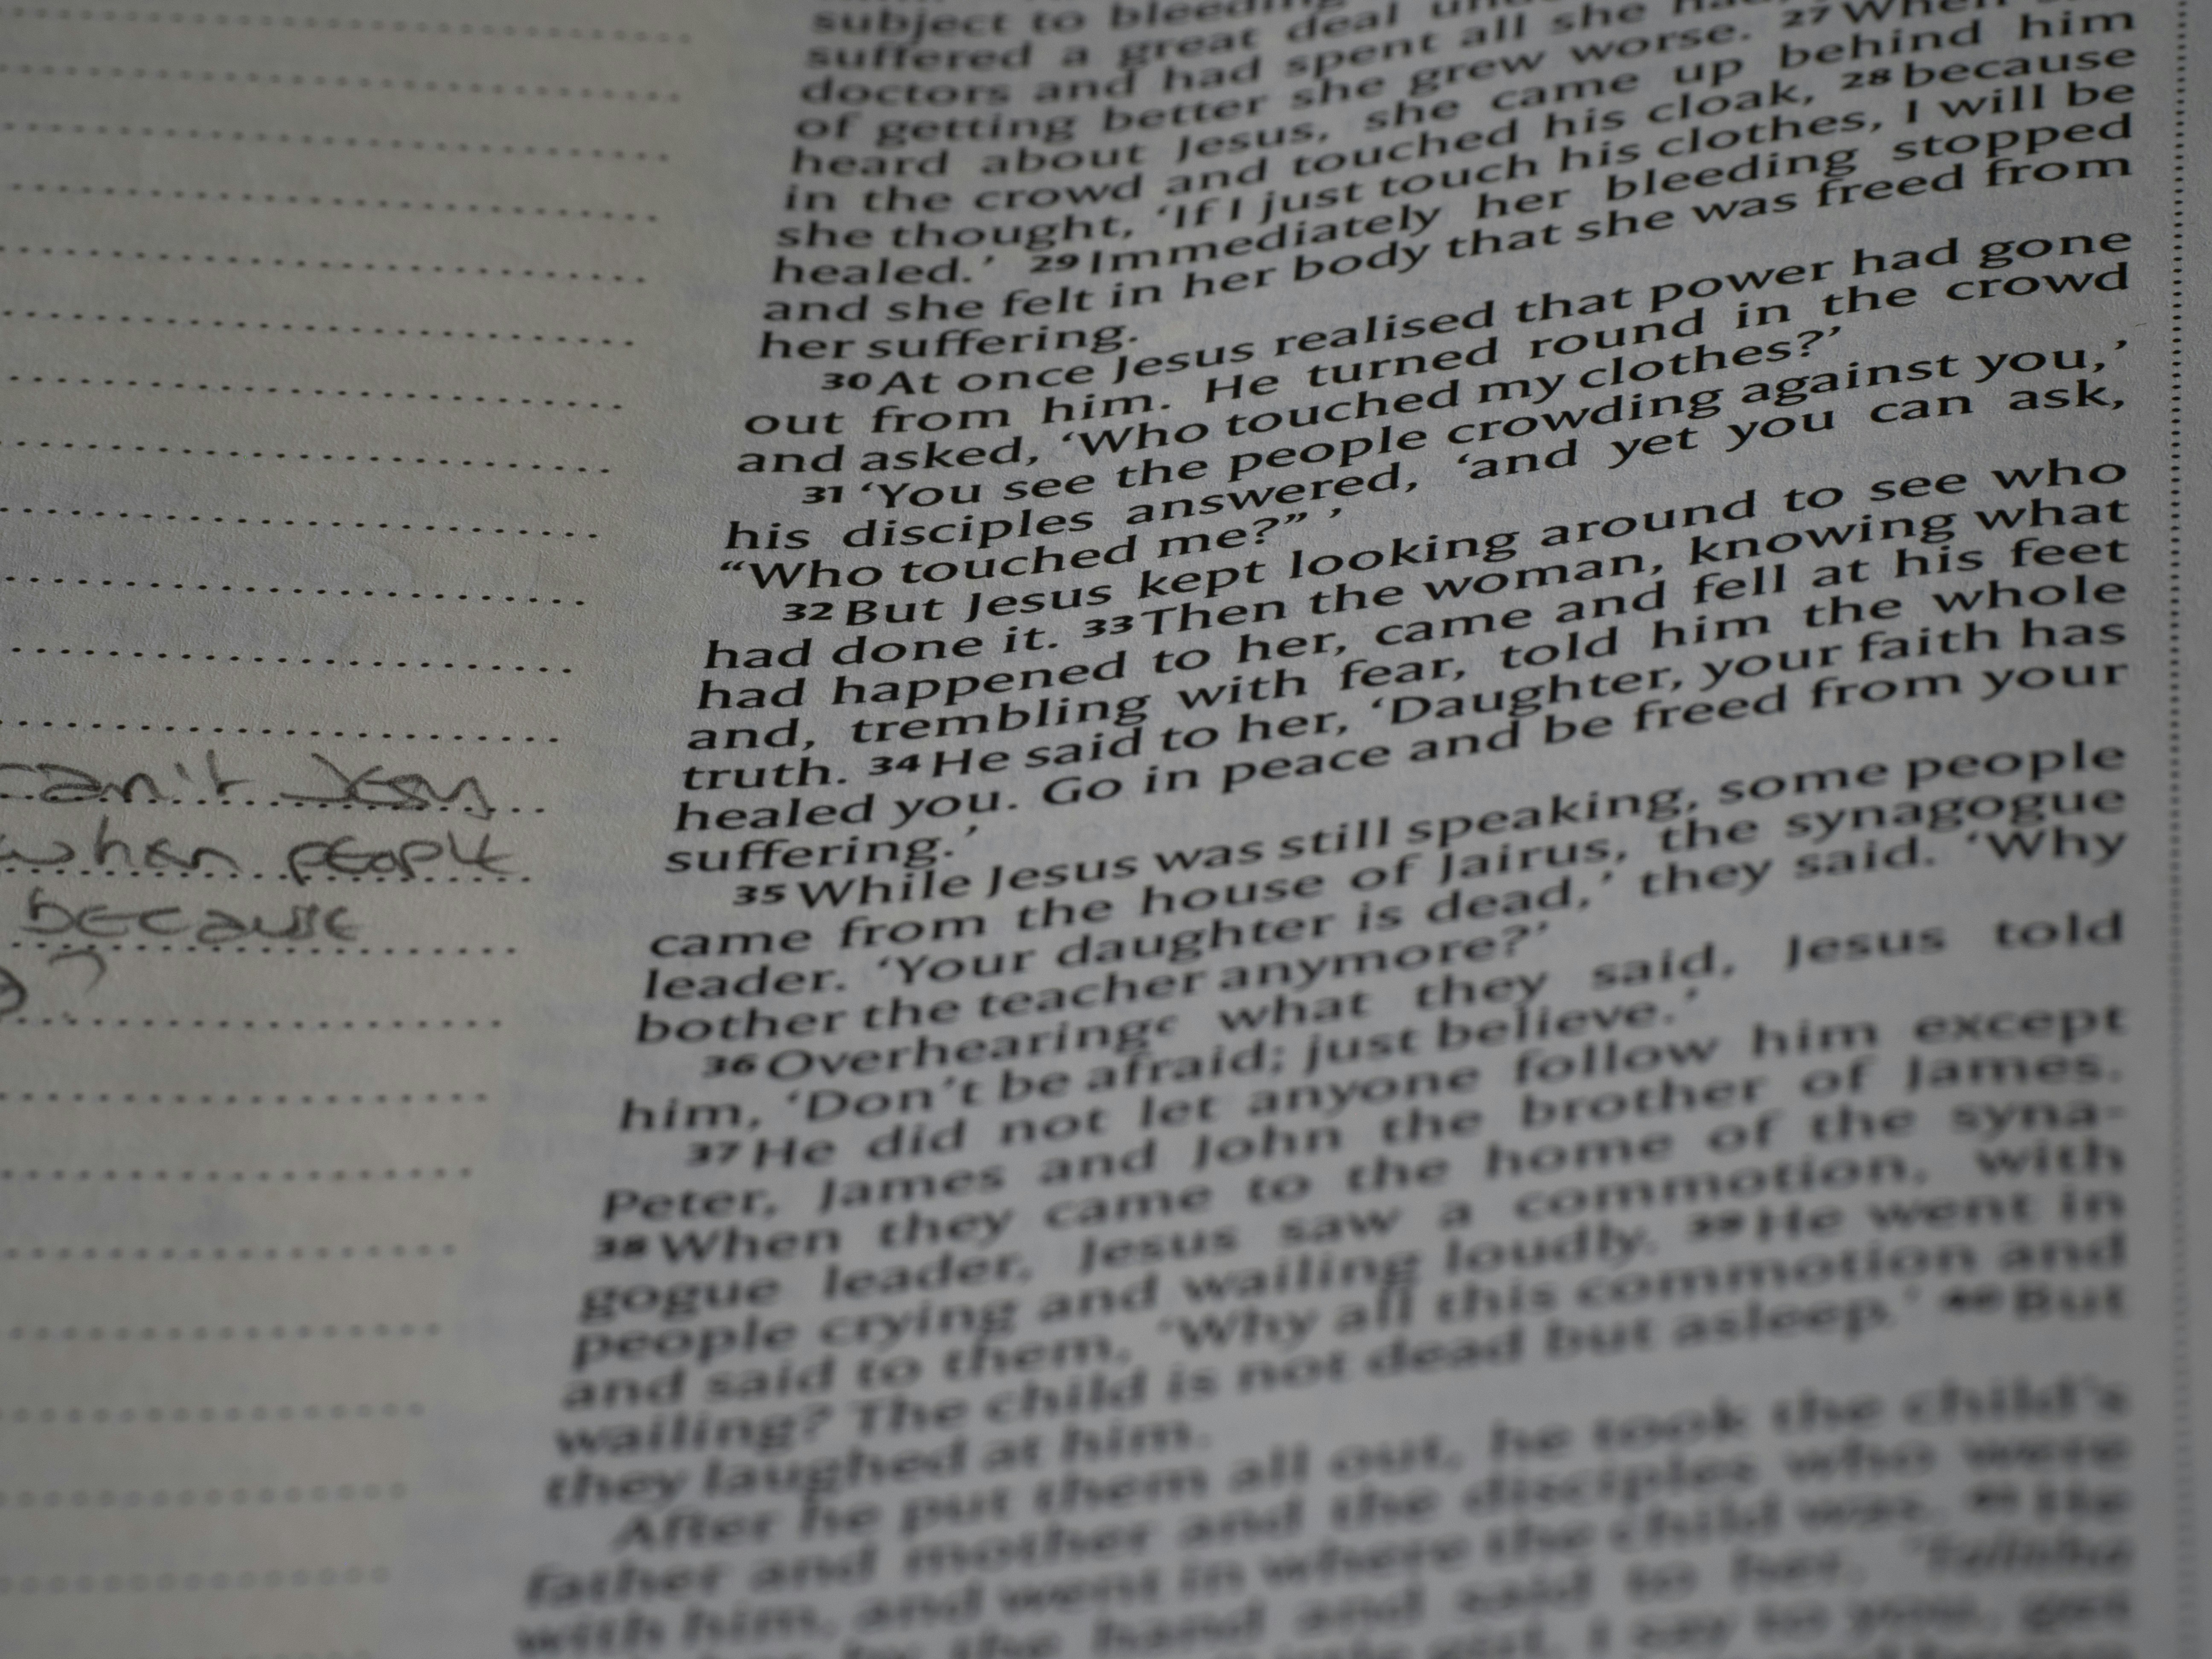 can't Jesus
when people
because
?
subject to bleeding
suffered a great deal
doctors and had spent all she had,
of getting better she grew worse. 27 When
heard about Jesus, she came up behind him
in the crowd and touched his cloak, 28 because
she thought, ‘If I just touch his clothes, I will be
healed.’ 29 Immediately her bleeding stopped
and she felt in her body that she was freed from
her suffering.
30 At once Jesus realised that power had gone
out from him. He turned round in the crowd
and asked, ‘Who touched my clothes?’
31 ‘You see the people crowding against you,’
his disciples answered, ‘and yet you can ask,
“Who touched me?” ’
32 But Jesus kept looking around to see who
had done it. 33 Then the woman, knowing what
had happened to her, came and fell at his feet
and, trembling with fear, told him the whole
truth. 34 He said to her, ‘Daughter, your faith has
healed you. Go in peace and be freed from your
suffering.’
35 While Jesus was still speaking, some people
came from the house of Jairus, the synagogue
leader. ‘Your daughter is dead,’ they said. ‘Why
bother the teacher anymore?’
36 Overhearing c what they said, Jesus told
him, ‘Don’t be afraid; just believe.’
37 He did not let anyone follow him except
Peter, James and John the brother of James.
38 When they came to the home of the syna-
gogue leader, Jesus saw a commotion, with
people crying and wailing loudly. 39 He went in
and said to them, ‘Why all this commotion and
wailing? The child is not dead but asleep.’ 40 But
they laughed at him.
After he put them all out, he took the child’s
father and mother and the disciples who were
with him, and went in where the child was. 41 He
by the hand and said to her, ‘Talitha
I say to you, get